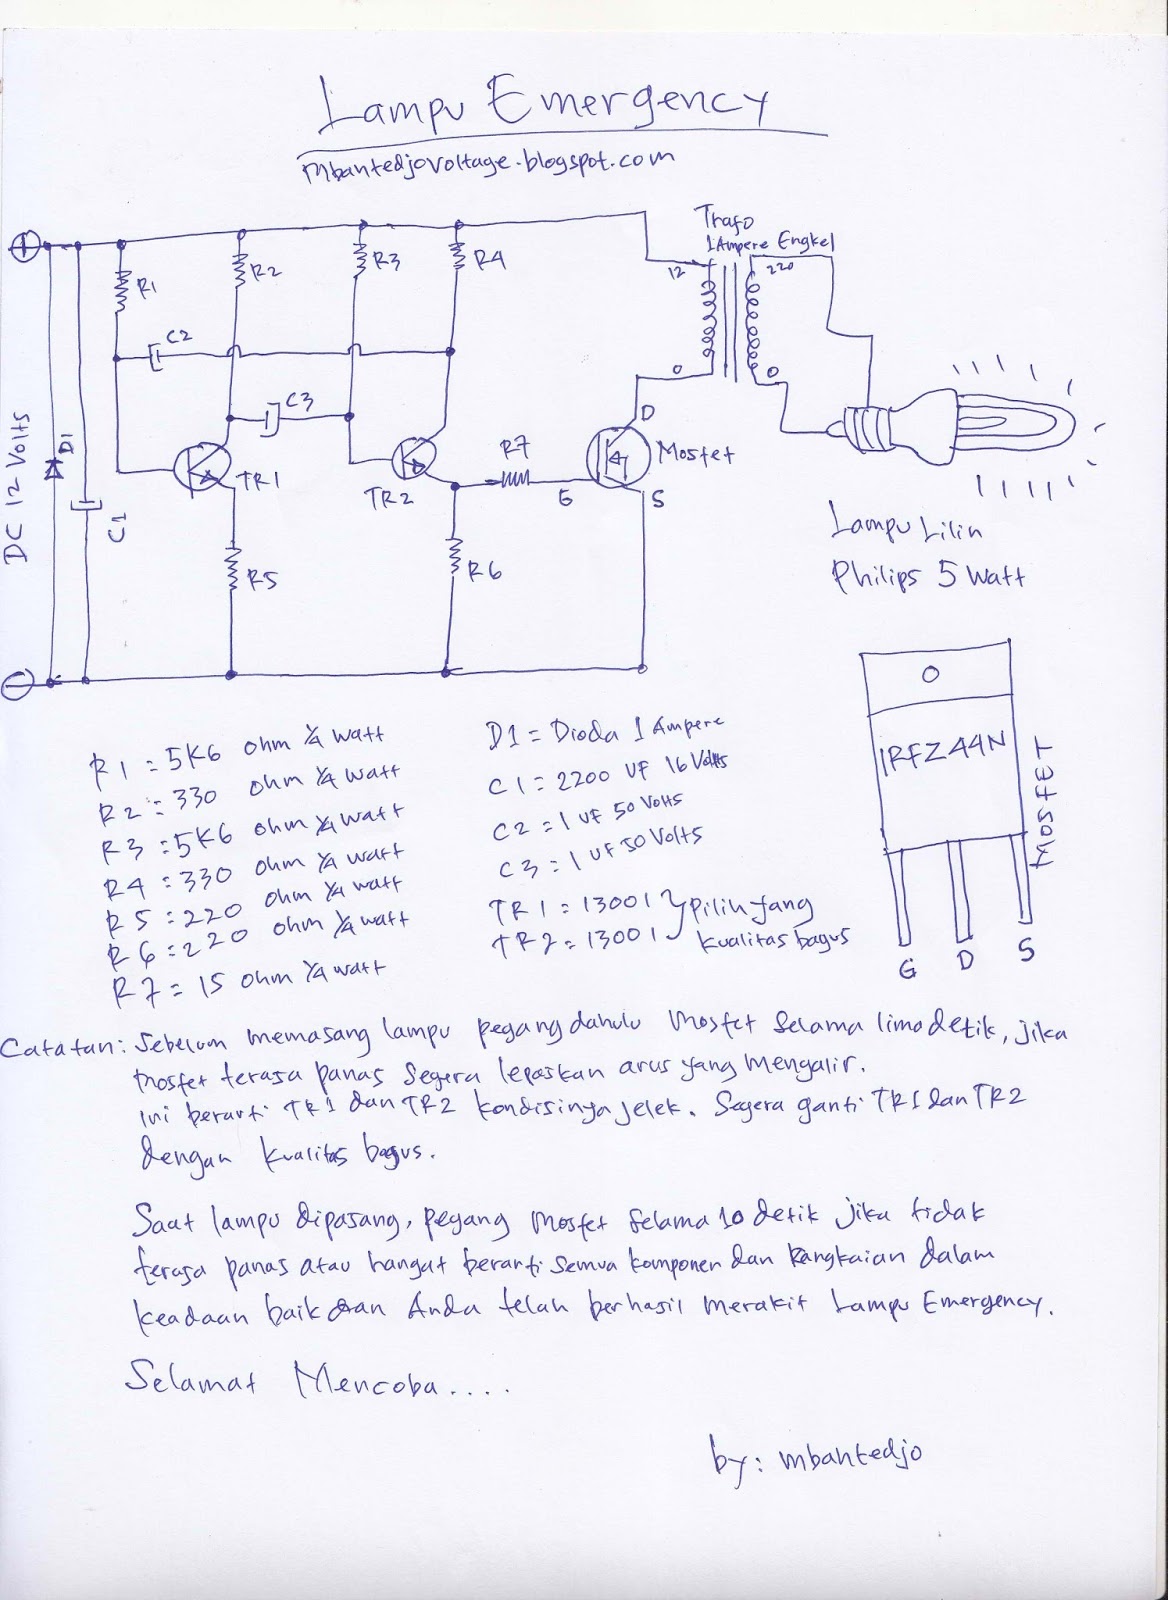 Lampu Emergency
mbantedjovoltage.blogspot.com
Trafo
1 Ampere Engkel
12
220
0
0
R1
R2
R3
R4
C2
C3
DC 12 Volts
D1
C1
TR1
TR2
R7
G
D
S
Mosfet
R5
R6
Lampu Lilin
Philips 5 Watt
R1 = 5K6 ohm 1/4 watt
R2 = 330 ohm 1/4 watt
R3 = 5K6 ohm 1/4 watt
R4 = 330 ohm 1/4 watt
R5 = 220 ohm 1/4 watt
R6 = 220 ohm 1/4 watt
R7 = 15 ohm 1/4 watt
D1 = Dioda 1 Ampere
C1 = 2200 UF 16 Volts
C2 = 1 UF 50 Volts
C3 = 1 UF 50 Volts
TR1 = 13001 } pilih yang
TR2 = 13001 } kualitas bagus
IRFZ44N
MOSFET
G D S
Catatan: Sebelum memasang lampu pegang dahulu Mosfet Selama lima detik, jika
Mosfet terasa panas Segera lepaskan arus yang mengalir.
ini berarti TR1 dan TR2 kondisinya jelek. Segera ganti TR1 dan TR2
dengan kualitas bagus.
Saat lampu dipasang, pegang Mosfet Selama 10 detik jika tidak
terasa panas atau hangat berarti semua komponen dan Rangkaian dalam
keadaan baik dan Anda telah berhasil merakit Lampu Emergency.
Selamat Mencoba....
by: mbantedjo